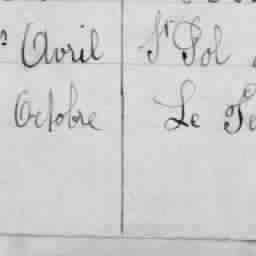 Avril St Pol
Octobre Le